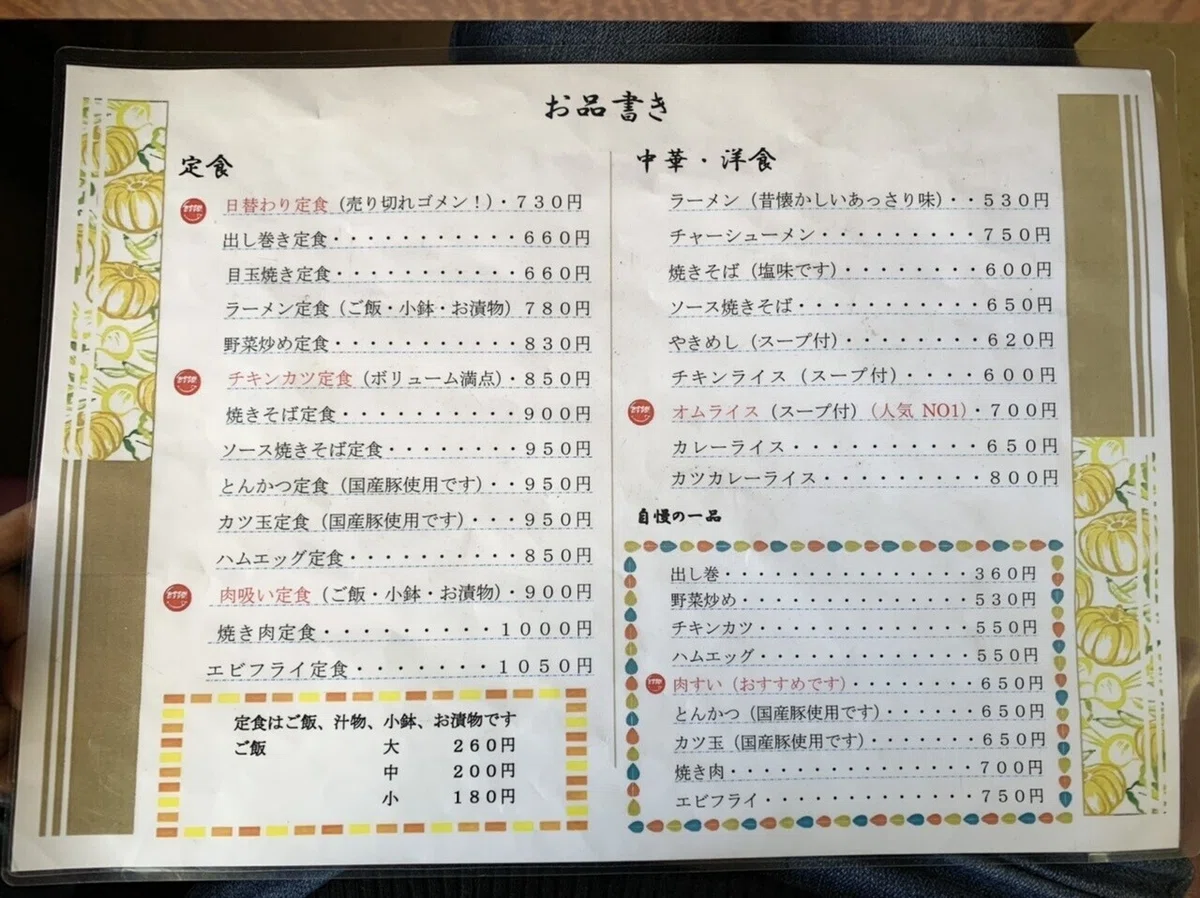 お品書き
定食
日替わり定食（売り切れゴメン！）・７３０円
出し巻き定食・・・・・・・・・・・６６０円
目玉焼き定食・・・・・・・・・・・６６０円
ラーメン定食（ご飯・小鉢・お漬物）７８０円
野菜炒め定食・・・・・・・・・・・８３０円
チキンカツ定食（ボリューム満点）・８５０円
焼きそば定食・・・・・・・・・・９００円
ソース焼きそば定食・・・・・・・・９５０円
とんかつ定食（国産豚使用です）・・９５０円
カツ玉定食（国産豚使用です）・・・９５０円
ハムエッグ定食・・・・・・・・・・８５０円
肉吸い定食（ご飯・小鉢・お漬物）・９００円
焼き肉定食・・・・・・・・・１０００円
エビフライ定食・・・・・・・１０５０円
定食はご飯、汁物、小鉢、お漬物です
ご飯 大 ２６０円
中 ２００円
小 １８０円
中華・洋食
ラーメン（昔懐かしいあっさり味）・・５３０円
チャーシューメン・・・・・・・・・７５０円
焼きそば（塩味です）・・・・・・・・６００円
ソース焼きそば・・・・・・・・・・６５０円
やきめし（スープ付）・・・・・・・・６２０円
チキンライス（スープ付）・・・・６００円
オムライス（スープ付）（人気 NO1）・７００円
カレーライス・・・・・・・・・・６５０円
カツカレーライス・・・・・・・・・８００円
自慢の一品
出し巻・・・・・・・・・・・・・・３６０円
野菜炒め・・・・・・・・・・・・・５３０円
チキンカツ・・・・・・・・・・・・５５０円
ハムエッグ・・・・・・・・・・・・５５０円
肉すい（おすすめです）・・・・・・・６５０円
とんかつ（国産豚使用です）・・・・・６５０円
カツ玉（国産豚使用です）・・・・・・６５０円
焼き肉・・・・・・・・・・・・・・７００円
エビフライ・・・・・・・・・・・・・７５０円